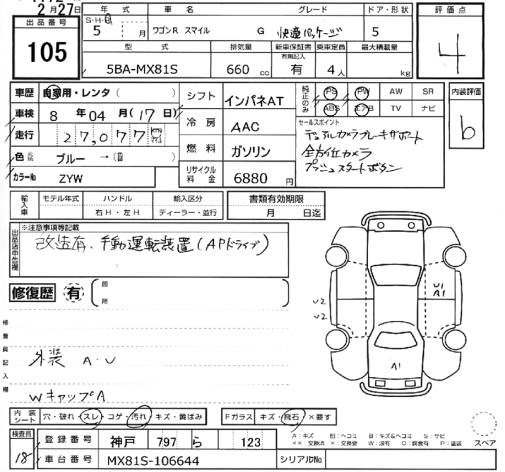 2月27日
出品番号
105
年式 車名 グレード ドア・形状
S・H・R 5 月 ワゴンR スマイル G 快適パッケージ 5
型式 排気量 新車保証書 乗車定員 最大積載量
有無記入
5BA-MX81S 660 cc 有 4人 kg
評価点
4
車歴 自家用・レンタ( )
車検 8年04月(17)日
走行 27,077
色 ブルー →( )
カラーNo ZYW
シフト インパネAT
冷房 AAC
燃料 ガソリン
リサイクル料金 6880円
純正のみ
PS PW AW SR
ABS エアB TV ナビ
セールスポイント
デュアルカメラブレーキサポート
全方位カメラ
プッシュスタートボタン
内装評価
b
輸入車 モデル年式 ハンドル 輸入区分
年 右H・左H ディーラー・並行
書類有効期限
月 日迄
出品店申告欄
※注意事項等記載
改造有、手動運転装置(APドライブ)
修復歴 有
箇所
検査員記入欄
外装 A.U
WキャップA
U2
U2
U1
A1
A1
内装シート 穴・破れ・スレ・コゲ・汚れ・キズ・黄ばみ
Fガラス キズ・飛石・×要す
検査員
18
登録番号 神戸 797 ら 123
車台番号 MX81S-106644
シリアルNo
A:キズ U:ヘコミ B:キズ&ヘコミ S:サビ
××:交換済 ×:要交換 W:波有 C:腐食有 P:塗装
スペア